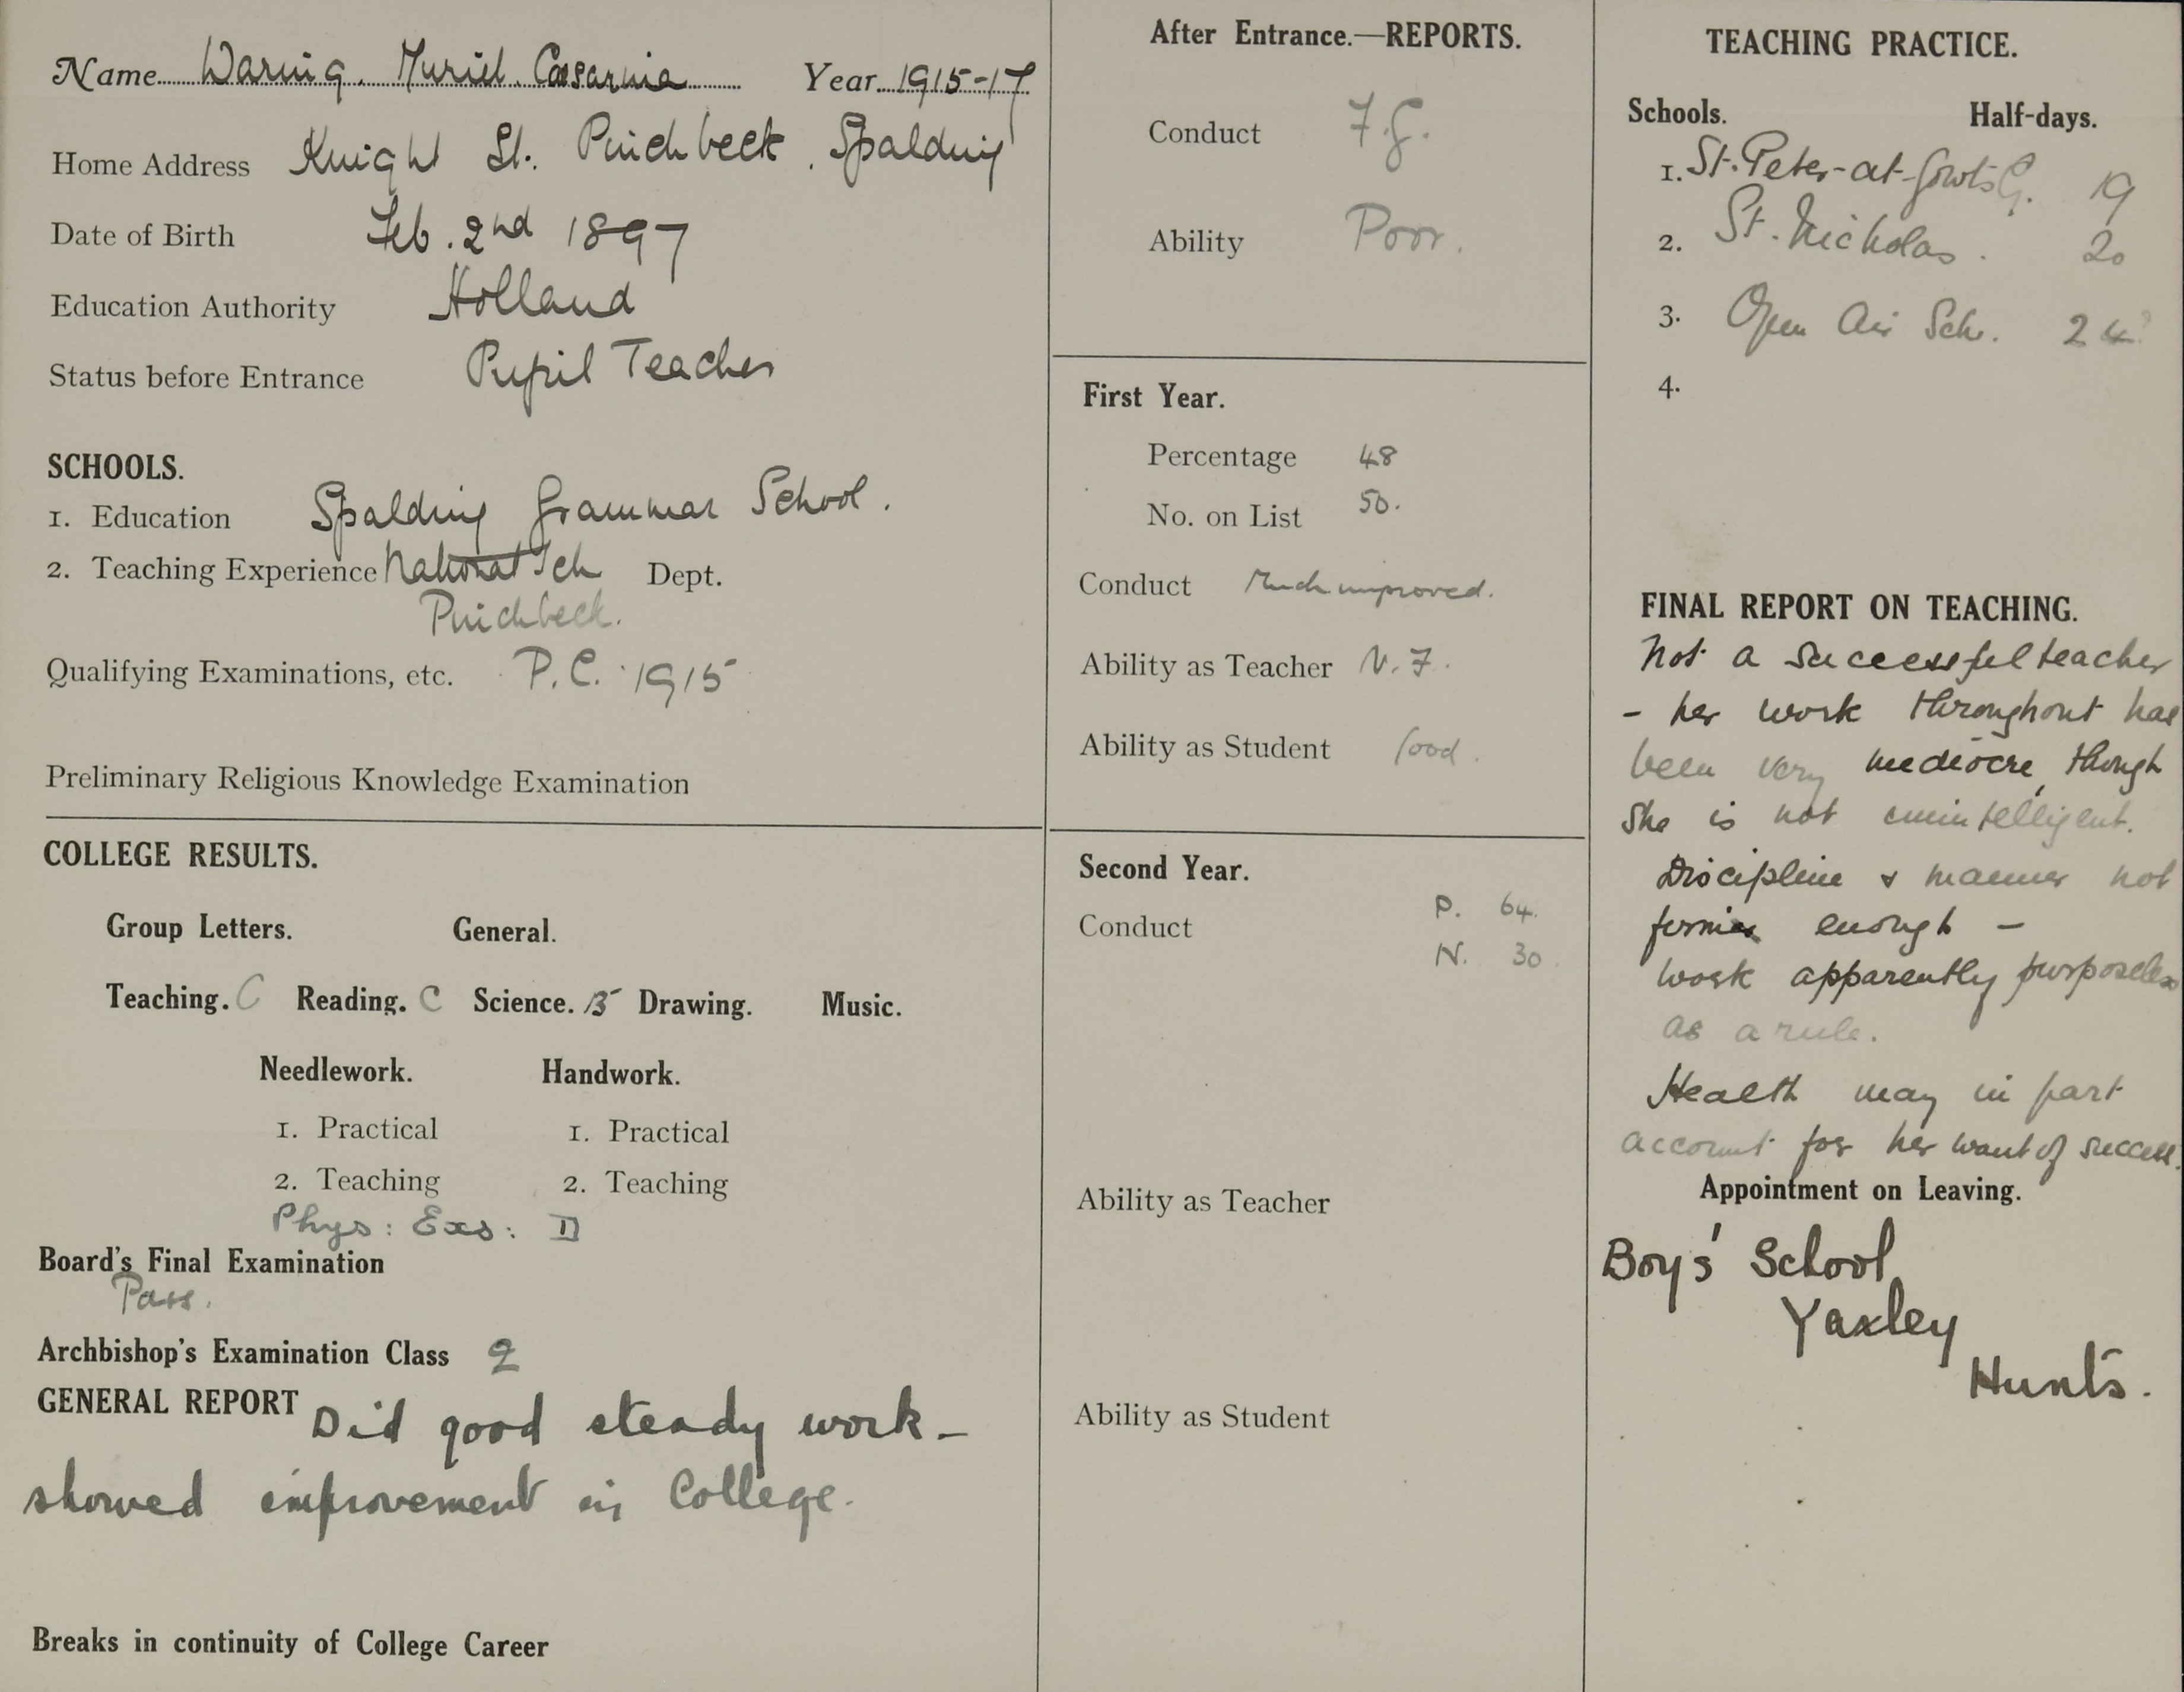 Name Waring. Muriel. Caesarnia Year 1915-17
Home Address Knight St. Pinchbeck, Spalding
Date of Birth Feb. 2nd 1897
Education Authority Holland
Status before Entrance Pupil Teacher
SCHOOLS.
1. Education Spalding Grammar School.
2. Teaching Experience National Sch Dept.
Pinchbeck.
Qualifying Examinations, etc. P.C. 1915
Preliminary Religious Knowledge Examination
COLLEGE RESULTS.
Group Letters. General.
Teaching. C Reading. C Science. B Drawing. Music.
Needlework. Handwork.
1. Practical 1. Practical
2. Teaching 2. Teaching
Phys: Exs: D
Board's Final Examination
Pass.
Archbishop's Examination Class 2
GENERAL REPORT Did good steady work -
showed improvement in College.
Breaks in continuity of College Career
After Entrance.—REPORTS.
Conduct F.G.
Ability Poor.
First Year.
Percentage 48
No. on List 50.
Conduct Much improved.
Ability as Teacher V.F.
Ability as Student Good.
Second Year.
P. 64.
Conduct
N. 30.
Ability as Teacher
Ability as Student
TEACHING PRACTICE.
Schools. Half-days.
1. St. Peter-at-Gowts G. 19
2. St. Nicholas. 20
3. Open Air Sch. 24?
4.
FINAL REPORT ON TEACHING.
Not a successful teacher
- her work throughout has
been very mediocre, though
she is not unintelligent.
Discipline & manner not
firm enough -
work apparently purposeless
as a rule.
Health may in part
account for her want of success.
Appointment on Leaving.
Boys' School
Yaxley
Hunts.